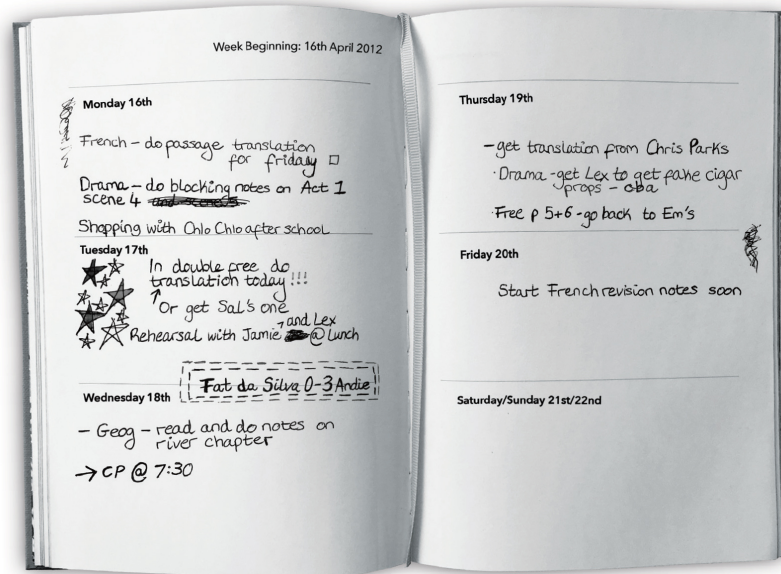 Week Beginning: 16th April 2012
Monday 16th
French – do passage translation
for friday
Drama – do blocking notes on Act 1
scene 4 and scene 5
Shopping with Chlo Chlo after school
Tuesday 17th
In double free do
translation today!!!
Or get Sal's one
and Lex
Rehearsal with Jamie @ Lunch
Fat da Silva 0-3 Andie
Wednesday 18th
– Geog – read and do notes on
river chapter
→ CP @ 7:30
Thursday 19th
– get translation from Chris Parks
· Drama - get Lex to get fake cigar
props – cba
· Free p 5+6 - go back to Em's
Friday 20th
Start French revision notes soon
Saturday/Sunday 21st/22nd